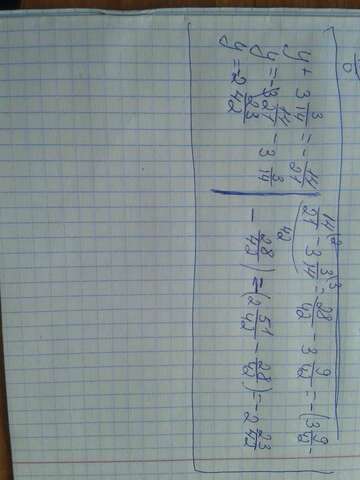 y + 3 3/14 = - 14/21
y = - 14/21 - 3 3/14
y = -2 23/42
14\2/21 - 3 3\3/14 = 28/42 - 3 9/42 = -(3 9/42 -
42
- 28/42) = -(2 51/42 - 28/42) = -2 23/42